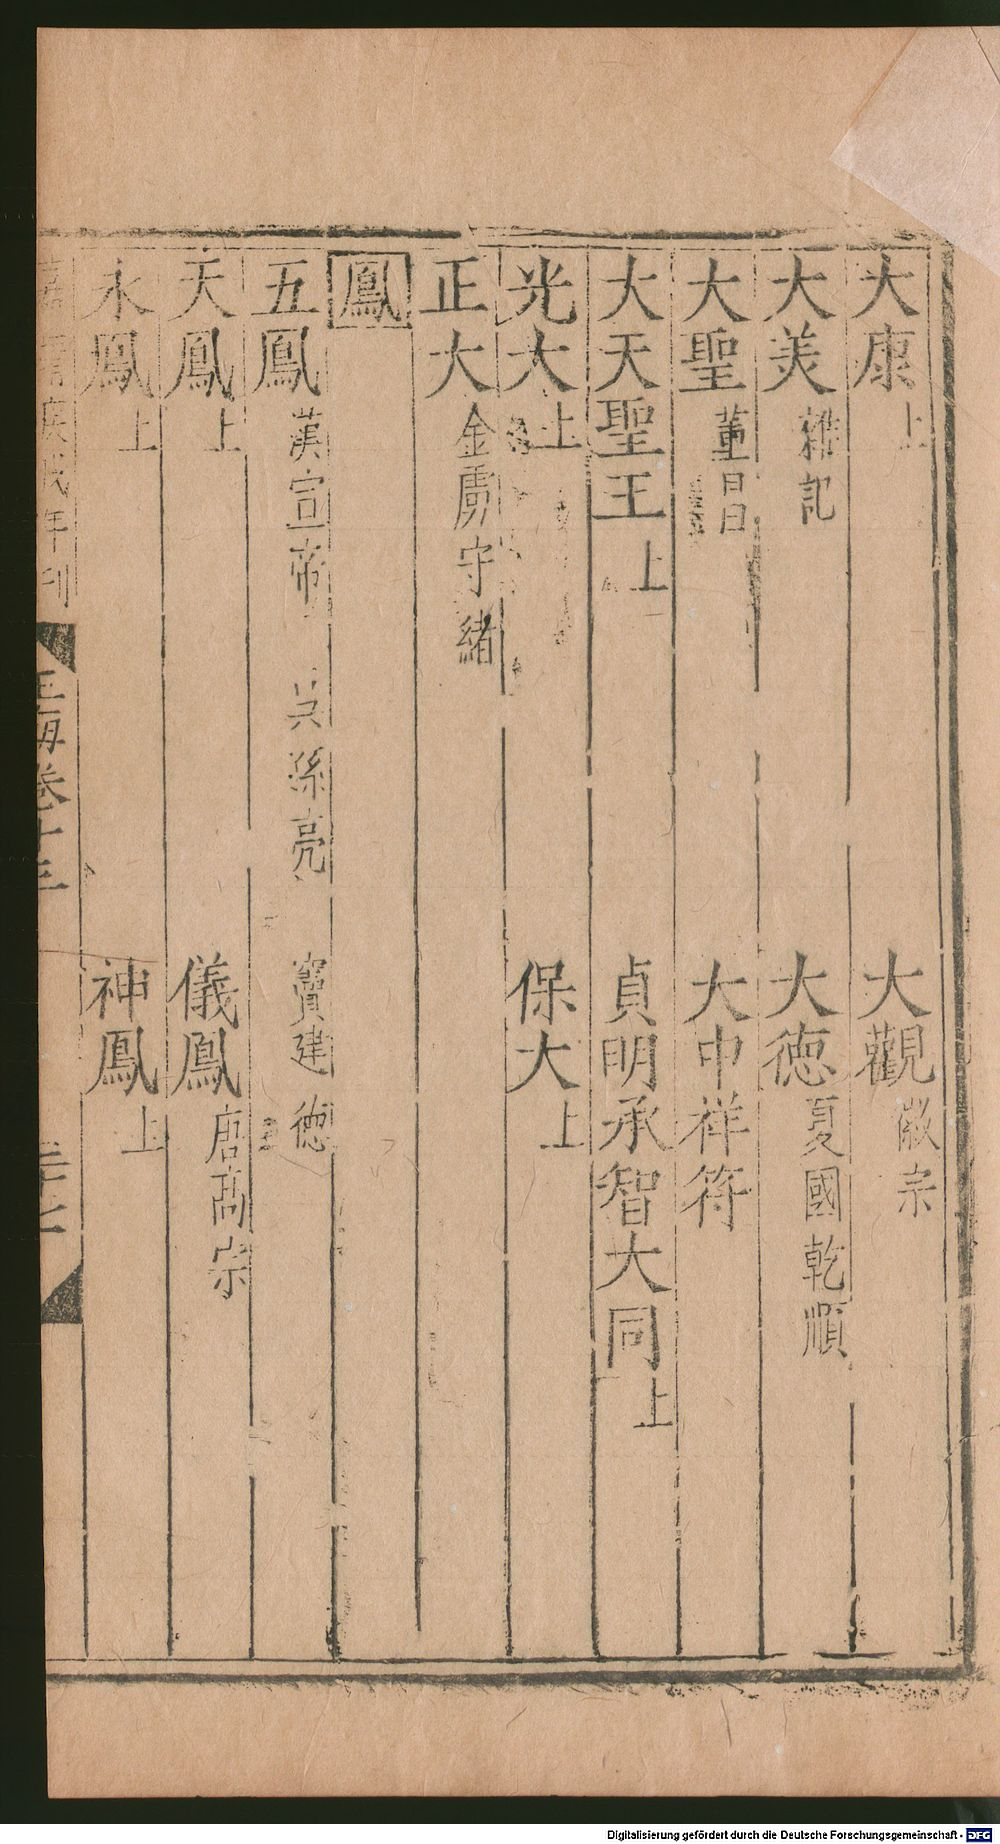 大康上　大觀徽宗
大美雜記　大德夏國乾順
大聖董昌　大中祥符
大天聖王上　貞明承智大同上
光大上　保大上
正大金虜守緒
鳳
五鳳漢宣帝　吳孫亮　竇建德
天鳳上　儀鳳唐高宗
永鳳上　神鳳上
年刊
玉海卷十三
Digitalisierung gefördert durch die Deutsche Forschungsgemeinschaft - DFG